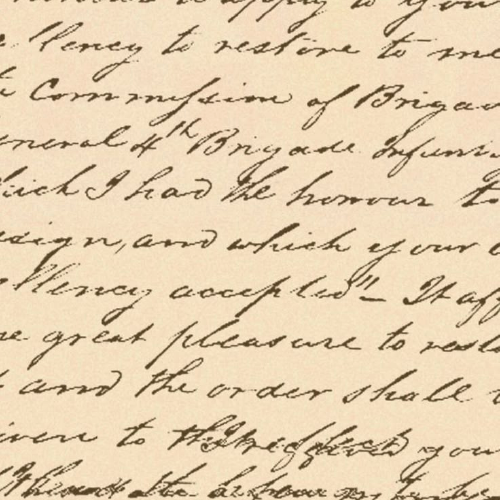 to apply to your
llency to restore to me
Commission of Brigad
neral 4th Brigade Infan
hich I had the honour to
sign, and which your
llency accepted"— It aff
me great pleasure to rest
and the order shall
iven to you